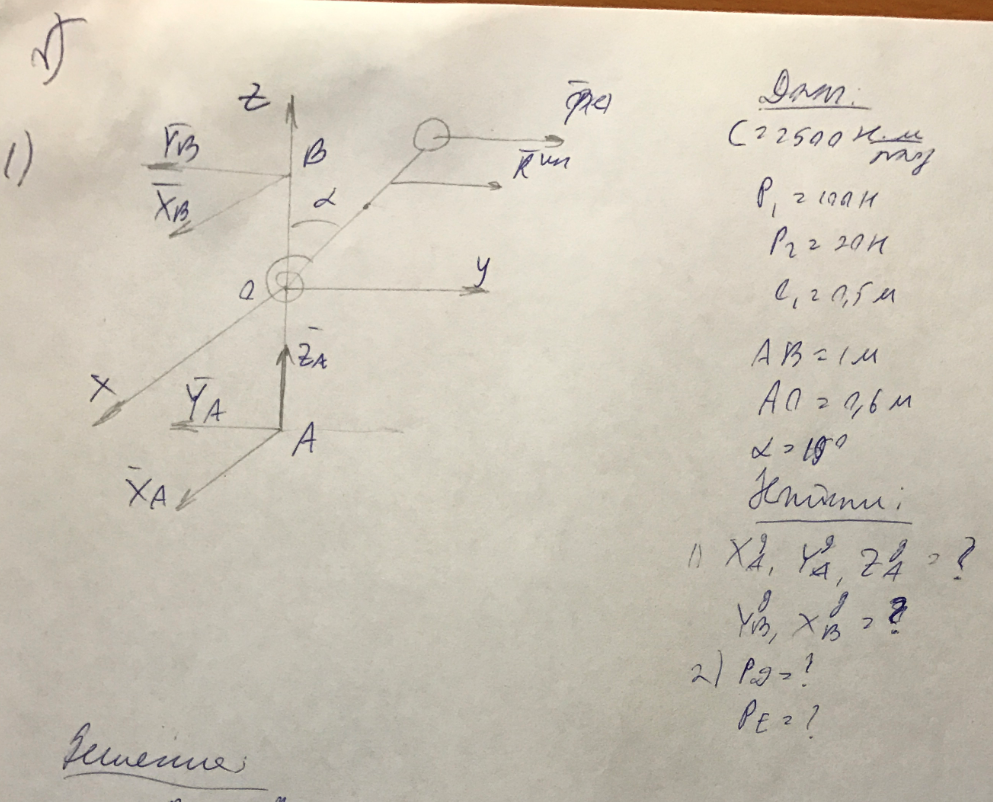 1)
Z
Y̅B
X̅B
B
α
R̅ ин
O
y
Z̅A
X
Y̅A
A
X̅A
Дано:
C = 2500 Н·м/рад
P₁ = 100 Н
P₂ = 20 Н
ℓ₁ = 0,5 м
AB = 1 м
AO = 0,6 м
Найти:
1) XᵍA, YᵍA, ZᵍA = ?
YᵍB, XᵍB = ?
2) P∂ = ?
PE = ?
Решение: